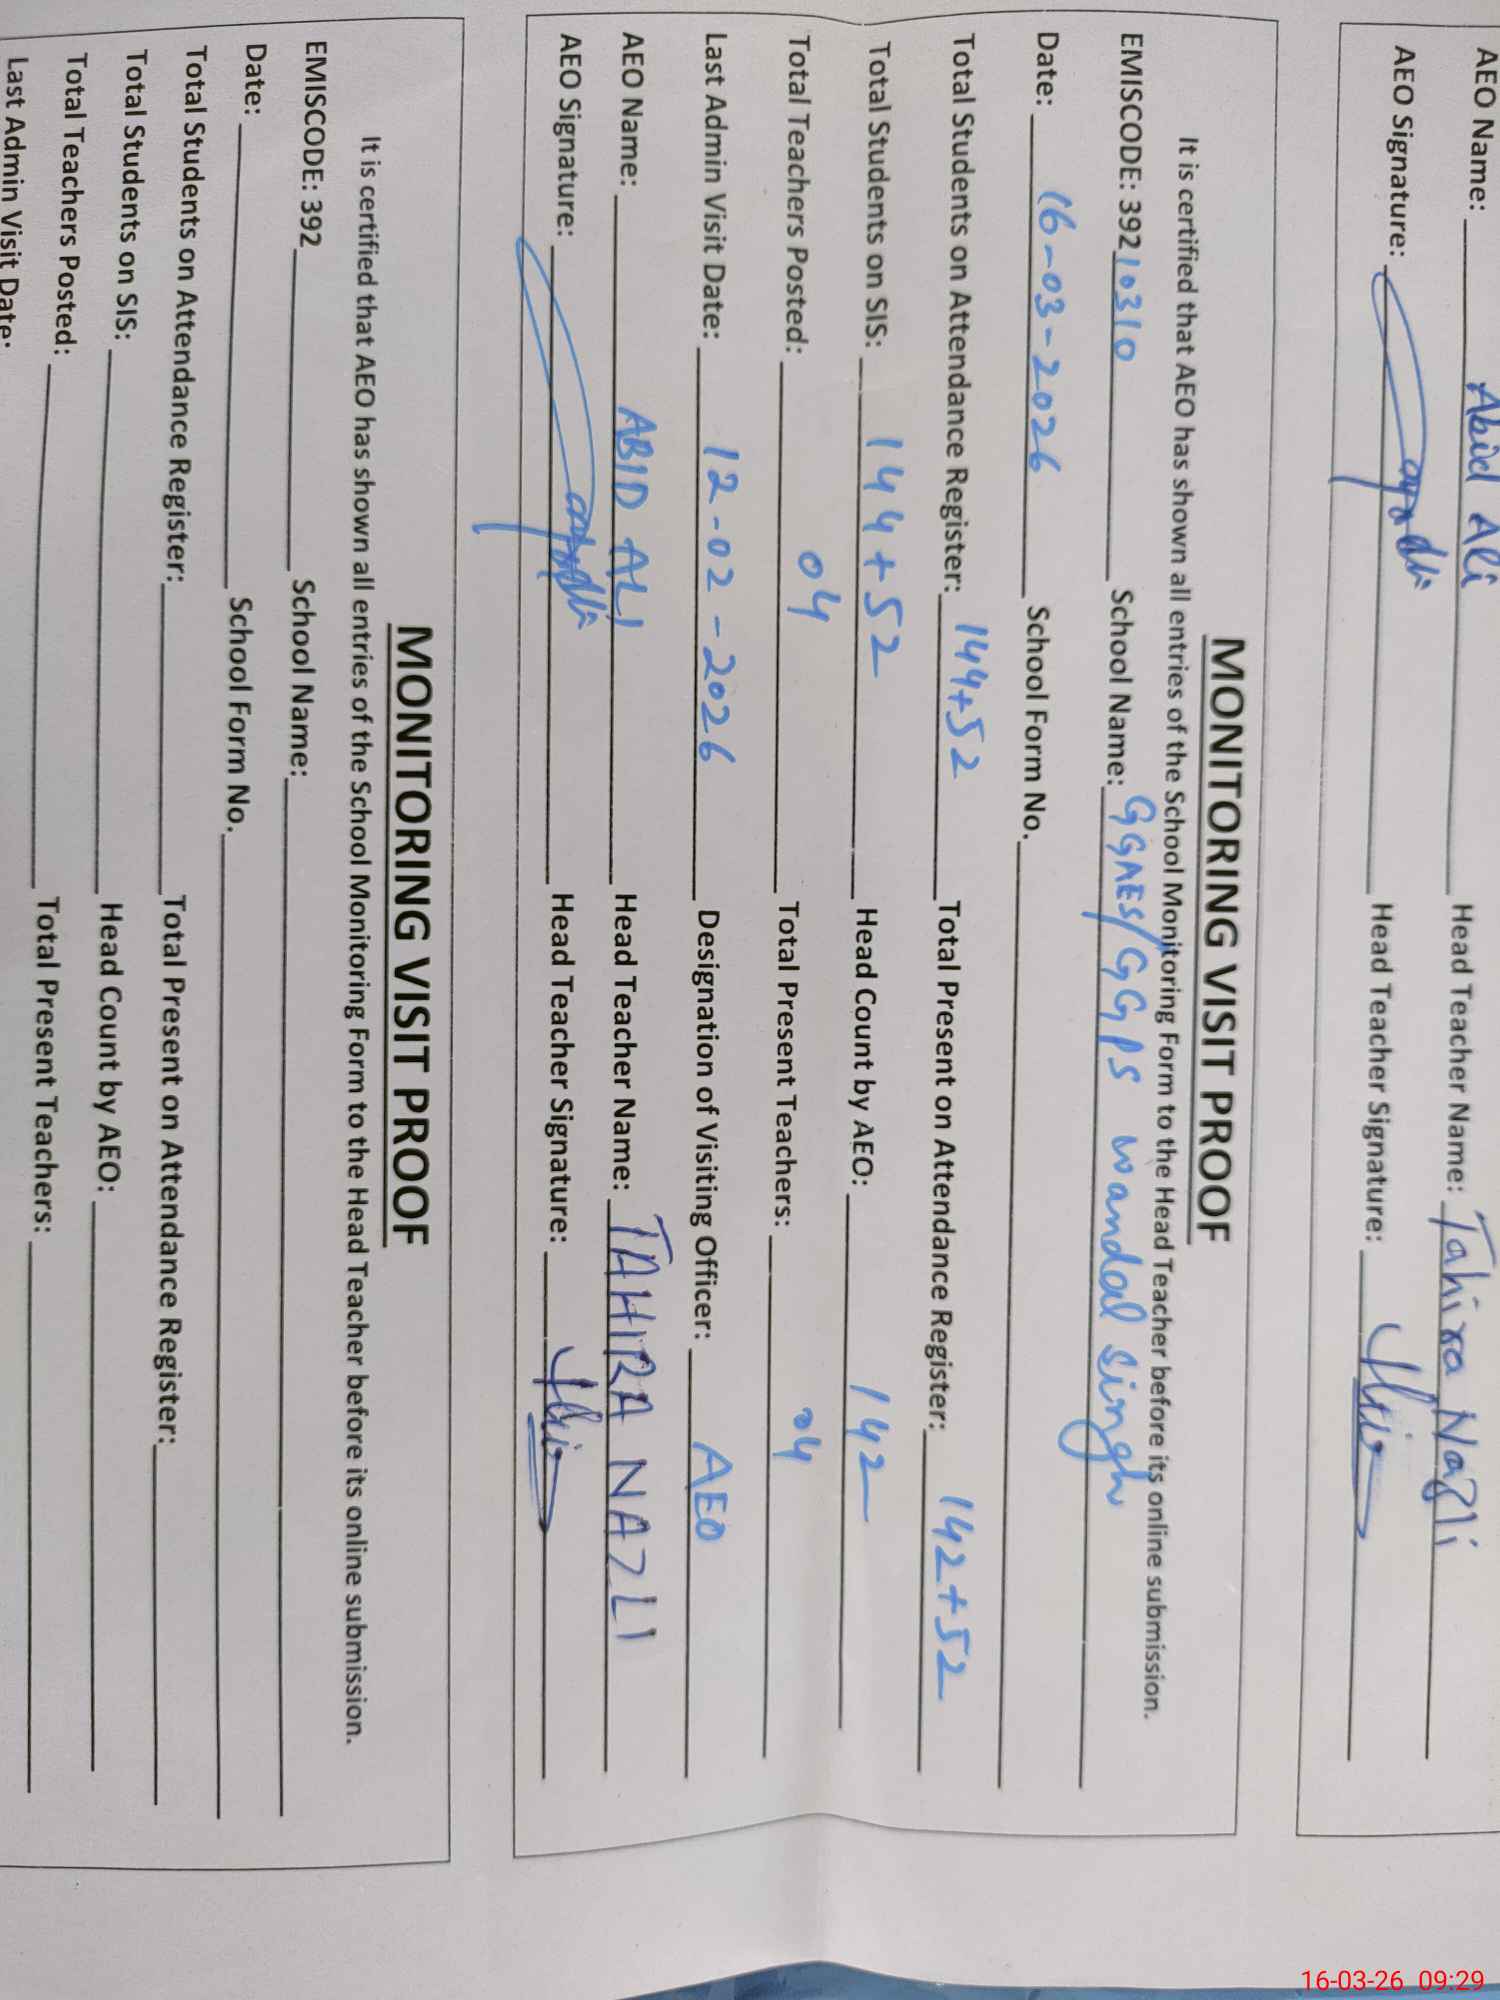 AEO Name: Abid Ali Head Teacher Name: Tahira Nazli
AEO Signature: Head Teacher Signature:
MONITORING VISIT PROOF
It is certified that AEO has shown all entries of the School Monitoring Form to the Head Teacher before its online submission.
EMISCODE: 39210310 School Name: GGAES/GGPS wandal singh
Date: 16-03-2026 School Form No.
Total Students on Attendance Register: 144+52 Total Present on Attendance Register: 142+52
Total Students on SIS: 144+52 Head Count by AEO: 142
Total Teachers Posted: 04 Total Present Teachers: 04
Last Admin Visit Date: 12-02-2026 Designation of Visiting Officer: AEO
AEO Name: ABID ALI Head Teacher Name: TAHIRA NAZLI
AEO Signature: Head Teacher Signature:
MONITORING VISIT PROOF
It is certified that AEO has shown all entries of the School Monitoring Form to the Head Teacher before its online submission.
EMISCODE: 392 School Name:
Date: School Form No.
Total Students on Attendance Register: Total Present on Attendance Register:
Total Students on SIS: Head Count by AEO:
Total Teachers Posted: Total Present Teachers:
Last Admin Visit Date:
16-03-26 09:29